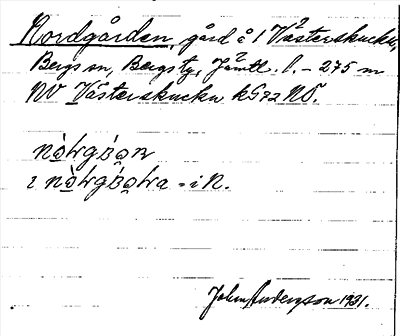 Nordgården, gård å 1 Västerskucku,
Bergs sn, Bergs tg, Jämtl. l. - 275 m
NV Västerskucku k G72 NÖ.
i nò̩ʈʂgɒ̀ʈa = i N.
John Anderzson 1931.